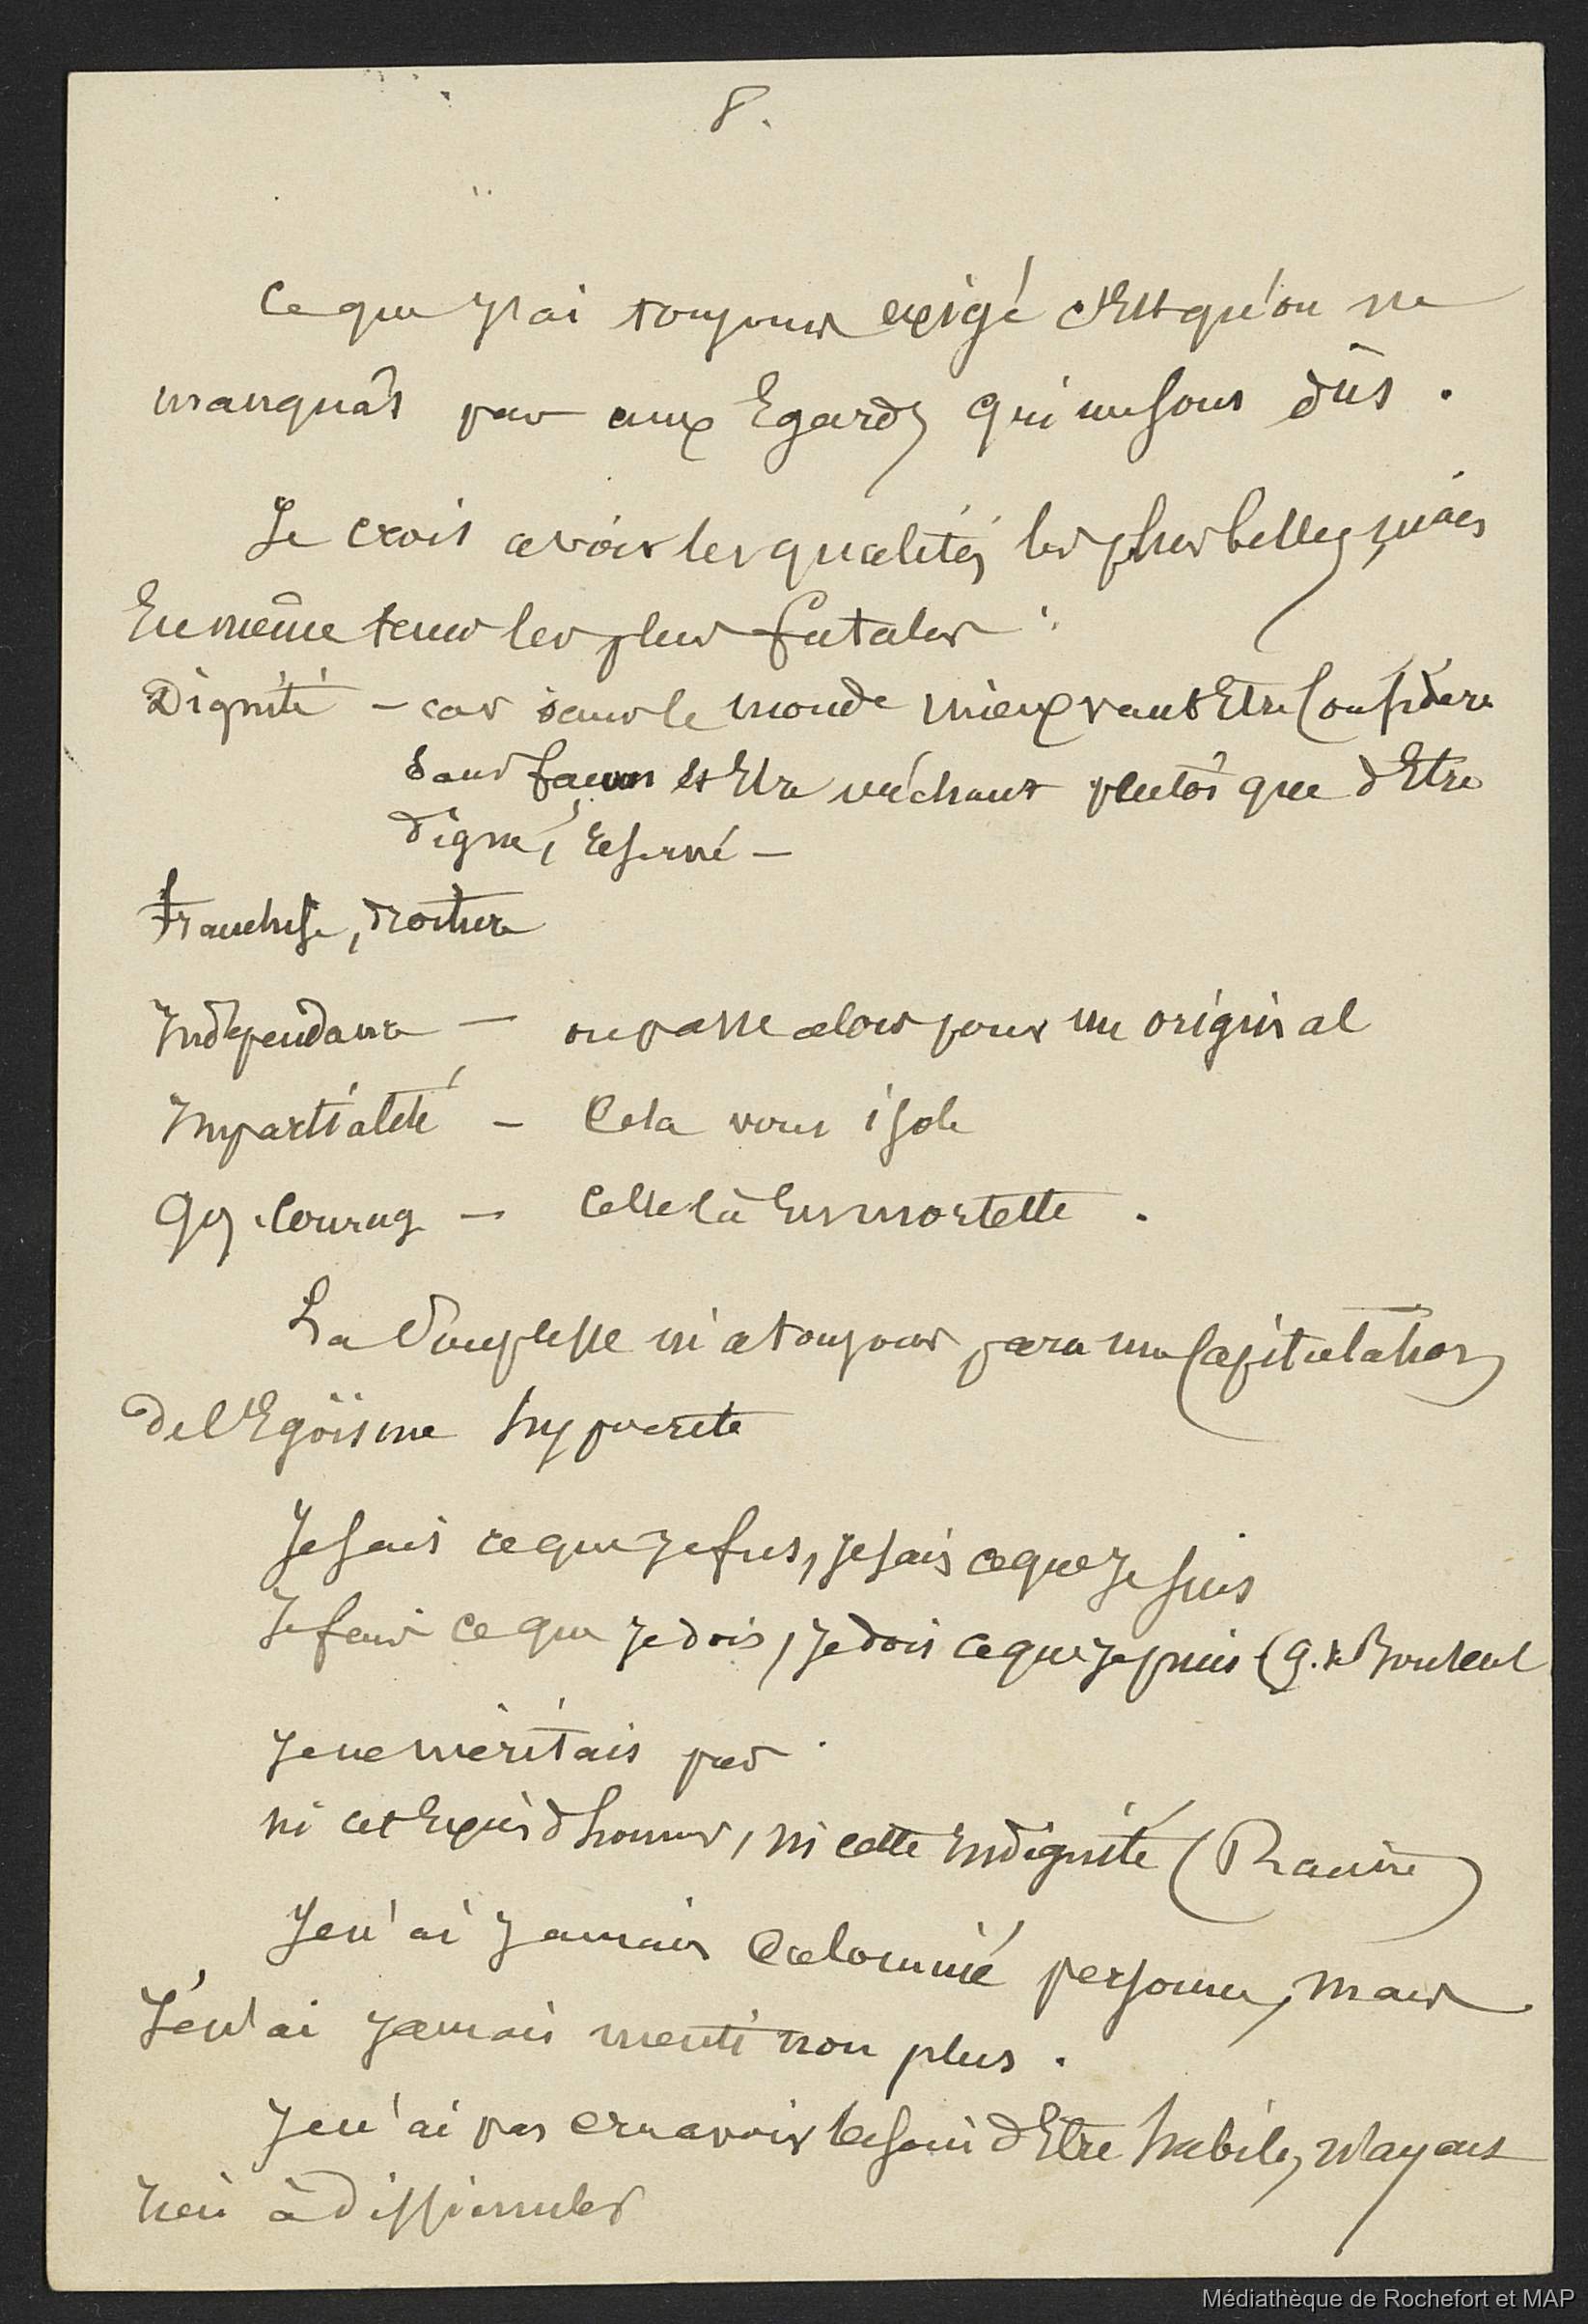 8.
Ce que j'ai toujours exigé c'est qu'on ne
manquât pas aux Egards qui me sont dûs.
Je crois avoir les qualités les plus belles, mais
En même tems les plus fatales :
Dignité – car dans le monde mieux vaut Etre Considéré
sans façon et Etre méchant plutôt que d'Etre
digne, réservé –
franchise, droiture
Indépendance – on passe alors pour un original
Impartialité – Cela vous isole
Qq. courage – Celle là Est mortelle.
La Souplesse m'a toujours paru une Capitulation
de l'Egoïsme hypocrite
Je sais ce que je fus, je sais ce que je suis
Je fais ce que je dois, je dois ce que je puis (G. de
Je ne méritais pas
ni cet Excès d'honneur, ni cette Indignité (Racine)
Je n'ai jamais Calomnié personne, mais
Je n'ai jamais menti non plus.
Je n'ai pas cru avoir besoin d'Etre habile, n'ayant
rien à dissimuler
Médiathèque de Rochefort et MAP